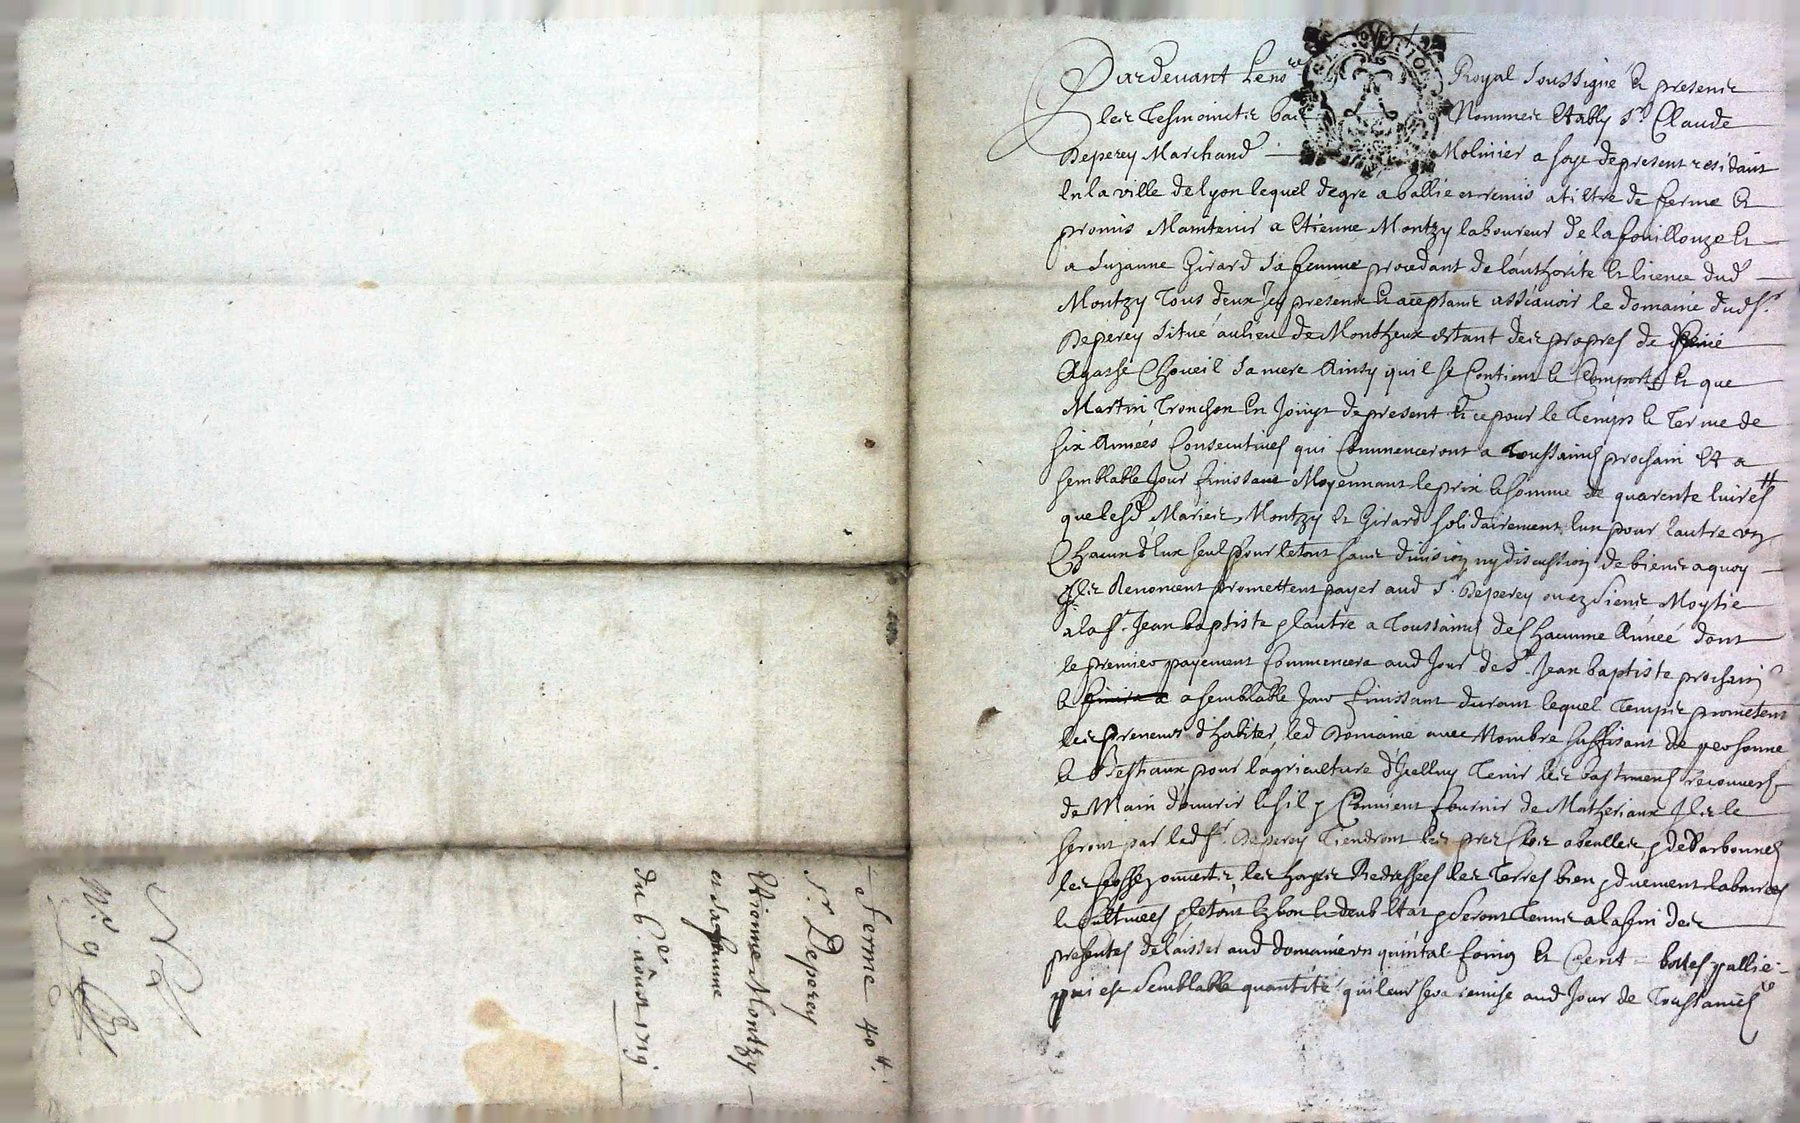 ferme 40ᵗᵗ.
Sr. Deperey
Etienne Montzy
et sa femme
du 6e aoust 1719
Pardevant Le no.re Royal soussigné Et presents
les Tesmoints bas Nommes Estably Sr. Claude
Deperey Marchand Molinier a soye de present residant
En la ville de Lyon lequel de gre a ballie et remis a tiltre de ferme Et
promis Maintenir a Etienne Montzy laboureur de la fouillouze Et
a Suzanne Girard sa femme procedant de lauthorité Et licence dud
Montzy Tous deux Icy presents Et aceptants assçavoir le domaine dud Sr.
Deperey situé au lieu de Montheux estant des propres de
Agathe Choueil sa mere Ainsy quil se Contient Et Comporte Et que
Martin Tronchon En Jouyt de present Et ce pour le Temps Et Terme de
six Années Consecutives qui Commenceront a Toussaints prochain Et a
semblable Jour finissant Moyennant le prix Et somme de quarente livres
que lesd Maries Montzy Et Girard solidairement lun pour lautre un
Chacun dEux seul pour le tout sans division ny discussion de biens a quoy
Ils Renoncent promettent payer aud Sr. Deperey ou ez siens Moytie
a la St. Jean baptiste et lautre a Toussaints de Chacunne Année dont
le premier payement Commencera aud Jour de St. Jean baptiste prochain
Et a semblable Jour finissant durant lequel Temps promettent
les preneurs dhabiter led Domaine avec Nombre suffisant de personne
Et bestiaux pour lagriculture dIcelluy Tenir les bastiments recouverts
de Main douvrir Et sil y Convient fournir de Matheriaux Ils le
seront par led Sr. Deperey Tiendront les prez
les fossez ouverts les hayes Redressées les Terres bien et duement labourées
Et Cultivées et le tout En bon Et deub Estat et seront Tenus a la fin des
presentes de laisser aud domaine un quintal foing Et Cent bottes pallie
pareille semblable quantité qui leur sera remise aud Jour de Toussaints